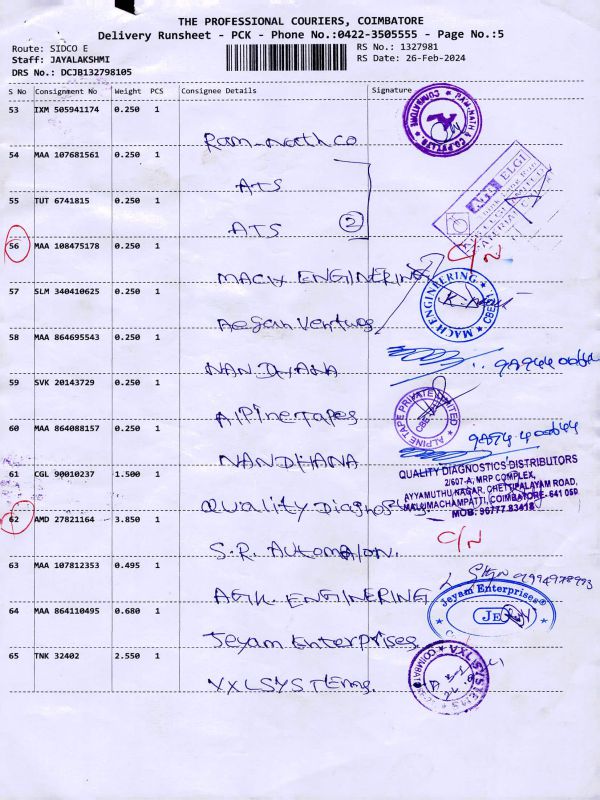 THE PROFESSIONAL COURIERS, COIMBATORE
Delivery Runsheet - PCK - Phone No.:0422-3505555 - Page No.:5
Route: SIDCO E
Staff: JAYALAKSHMI
DRS No.: DCJB132798105
RS No.: 1327981
RS Date: 26-Feb-2024
S No Consignment No Weight PCS Consignee Details Signature
53 IXM 505941174 0.250 1
Ram-nath co
54 MAA 107681561 0.250 1
ATS
55 TUT 6741815 0.250 1
ATS
2
ELGI
56 MAA 108475178 0.250 1
C/N
MACH ENGINEERING
MACH ENGINEERING
57 SLM 340410625 0.250 1
Aegan Ventures
58 MAA 864695543 0.250 1
NANDHANA
59 SVK 20143729 0.250 1
Alpine Tapes
ALPINE TAPE PRIVATE LIMITED
60 MAA 864088157 0.250 1
NANDHANA
61 CGL 90010237 1.500 1
Quality Diagnostics
QUALITY DIAGNOSTICS DISTRIBUTORS
2/607-A, MRP COMPLEX,
AYYAMUTHU NAGAR, CHETTIPALAYAM ROAD,
MALUMACHAMPATTI, COIMBATORE- 641 050
MOB: 96777 83418
62 AMD 27821164 3.850 1
C/N
S.R. Automation.
63 MAA 107812353 0.495 1
AGIK ENGINERING
64 MAA 864110495 0.680 1
Jeyam Enterprises
Jeyam Enterprises
JE
65 TNK 32402 2.550 1
VXLSYSTEMS
VXL SYSTEMS